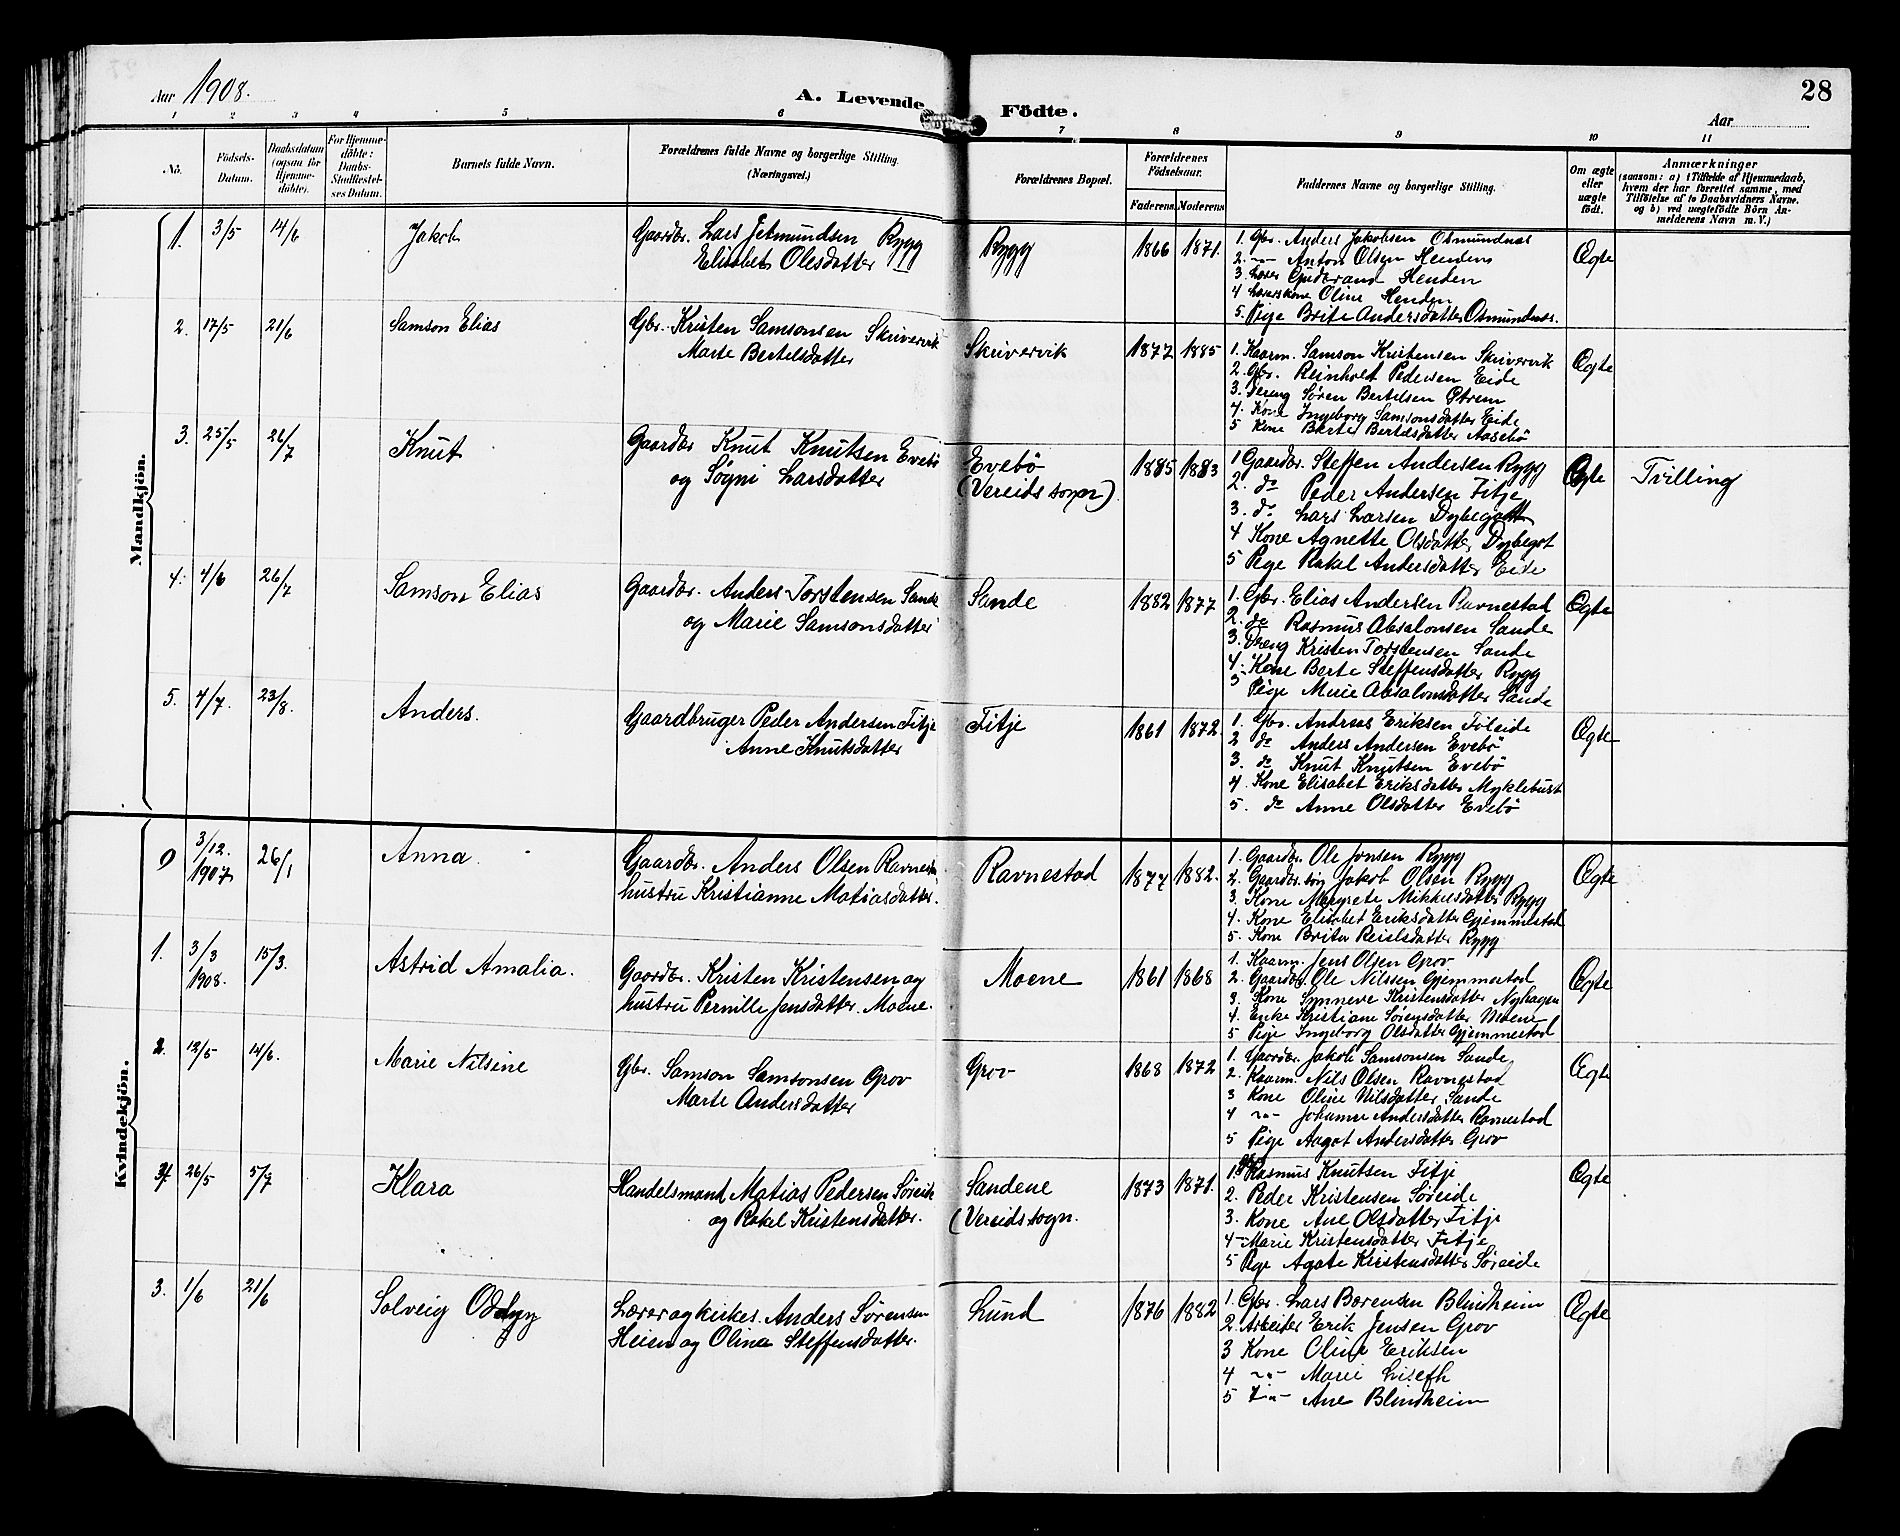 Aar 1908.
A. Levende Födte.
28
Aar
1 2 3 4 5 6 7 8 9 10 11
No.
Födsels-Datum.
Daabsdatum (ogsaa for Hjemme-döbte).
For Hjemme-döbte: Daabs-Stadfæstel-ses Datum.
Barnets fulde Navn.
Forældrenes fulde Navne og borgerlige Stilling.
(Næringsvei.)
Forældrenes Bopæl.
Forældrenes Födselsaar.
Faderens. Moderens.
Faddernes Navne og borgerlige Stilling.
Om ægte eller uægte födt.
Anmærkninger
(saasom: a) i Tilfælde af Hjemmedaab,
hvem der har forrettet samme, med
Tilföielse af to Daabsvidners Navne.
og b) ved uægtefödte Börn An-
melderens Navn m. V.)
Mandkjön.
1. 3/5 14/6 Jakob
Gaardbr. Lars Jetmundsen Rygg
Elisabet Olesdatter
Rygg 1866 1871.
1. Gbr. Anders Jakobsen Osmundnes
2. -"- Anton Olsen Hendene
3. Lærer Gudbrand Henden
4 Lærerskone Oline Henden
5. Pige Brite Andersdatter Osmundnes.
Ægte
2. 17/5 21/6 Samson Elias
Gbr. Kristen Samsonsen Skrivervik
Marte Bertelsdatter
Skrivervik 1877 1885
1. Kaarm. Samson Kristensen Skrivervik
2. Gbr. Reinholt Pedersen Eide
3. Dreng Søren Bertelsen Ostrem
4. Kone Ingeborg Samsonsdatter Eide
5 Kone Berte Bertelsdatter Aasebö
Ægte
3. 25/5 26/7 Knut
Gaardbr Knut Knutsen Evebö
og Søgni Larsdatter
Evebö
(Vereids sogn).
1885 1883
1 Gaardbr. Steffen Andersen Rygg
2. do Peder Andersen Fitje
3. do Lars Larsen Dybegott
4 Kone Agnette Olsdatter Dybegot
5 Pige Rakel Andersdatter Eide
Ægte Tvilling
4. 4/6 26/7 Samson Elias
Gaardbr. Anders Torstensen Sande
og Marie Samsonsdatter
Sande 1882 1877
1. Gbr. Elias Andersen Ravnestad
2. do Rasmus Absalonsen Sande
3. Dreng Kristen Torstensen Sande
4. Kone Berte Steffensdatter Rygg
5 Pige Marie Absalonsdatter Sande
Ægte
5. 4/7. 23/8. Anders.
Gaardbruger Peder Andersen Fitje
Anne Knutsdatter
Fitje 1861 1872.
1. Gbr. Andreas Eriksen Føleide
2 do Anders Andersen Evebö
3. do Knut Knutsen Evebö
4. Kone Elisabet Eriksdatter Myklebust
5. do Anne Olsdatter Evebö
Ægte
Kvindekjön.
0 3/12. 1907 26/1 Anna.
Gaardbr. Anders Olsen Ravnestad
hustru Kristianne Matiasdatter.
Ravnestad 1877 1882.
1. Gaardbr. Ole Jonsen Rygg
2. Gaardbr. søn Jakob Olsen Rygg
3. Kone Margrete Mikkelsdatter Rygg
4. Kone Elisabet Eriksdatter Gjemmestad
5. Kone Brita Reielsdatter Rygg
Ægte
1. 3/3 1908. 15/3. Astrid Amalia.
Gaardbr. Kristen Kristensen og
hustru Pernille Jensdatter Moene.
Moene 1861 1868
1. Kaarm. Jens Olsen Grov
2. Gaardbr. Ole Nilssen Gjemmestad
3. Kone Synneve Kristensdatter Nyhagen
4. Enke Kristiane Sørensdatter Moene
5 Pige Ingeborg Olsdatter Gjemmestad
Ægte
2. 12/5 14/6. Marie Nilsine
Gbr. Samson Samsonsen Grov
Marte Andersdatter
Grov 1868 1872
1. Gaardbr. Jakob Samsonsen Sande
2. Kaarm. Nils Olsen Ravnestad
3 Kone Oline Nilsdatter Sande
4 -"- Johanne Andersdatter Ravnestad
5 Pige Aagot Andersdatter Grov
Ægte
26/5 5/7 Klara
Handelsmand Matias Pedersen Søreide
og Rakel Kristensdatter.
Sandene
(Vereids sogn.
1873 1871.
1. Rasmus Knutsen Fitje
2. Peder Kristensen Søreide
3. Kone Ane Olsdatter Fitje
4 Marie Kristensdatter Fitje
5 Pige Agate Kristensdatter Søreide
Ægte
3. 1/6 21/6 Solveig Oddlyg
Lærer og kirkes. Anders Sørensen
Heien og Olina Steffensdatter.
Lund 1876 1882
1. Gbr. Lars Børensen Blindheim
2. Arbeider Erik Jensen Grov
3 Kone Oline Eriksen
4 -"- Marie Liseth
5 -"- Ane Blindheim
Ægte